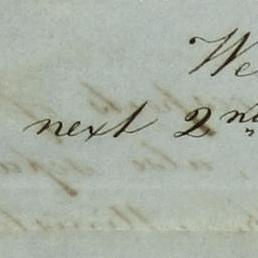 We
next 2nd